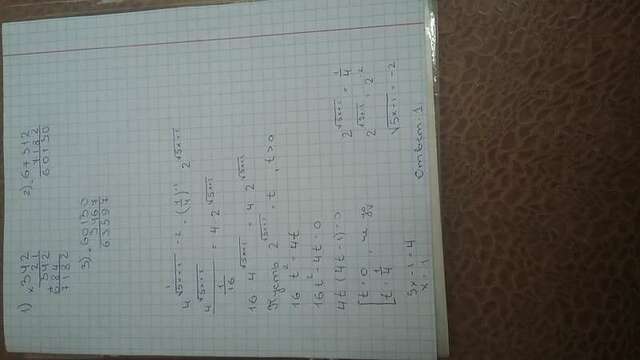 1) ×342
21
342
+ 684
7182
2) - 67312
7182
60130
3) + 60130
3467
63597
4^√(5x+1) ^-2 = (1/4)^-1 2^√(5x+1)
4^√(5x+1) / (1/16) = 4 · 2^√(5x+1)
16 4^√(5x+1) = 4 2^√(5x+1)
Пусть 2^√(5x+1) = t , t>0
16 t² = 4t
16t² - 4t = 0
4t (4t-1) = 0
[t = 0 , не уд
t = 1/4
2^√(5x+1) = 1/4
2^√(5x+1) = 2^-2
√(5x+1) = -2
5x-1=4
x = 1
Ответ. 1